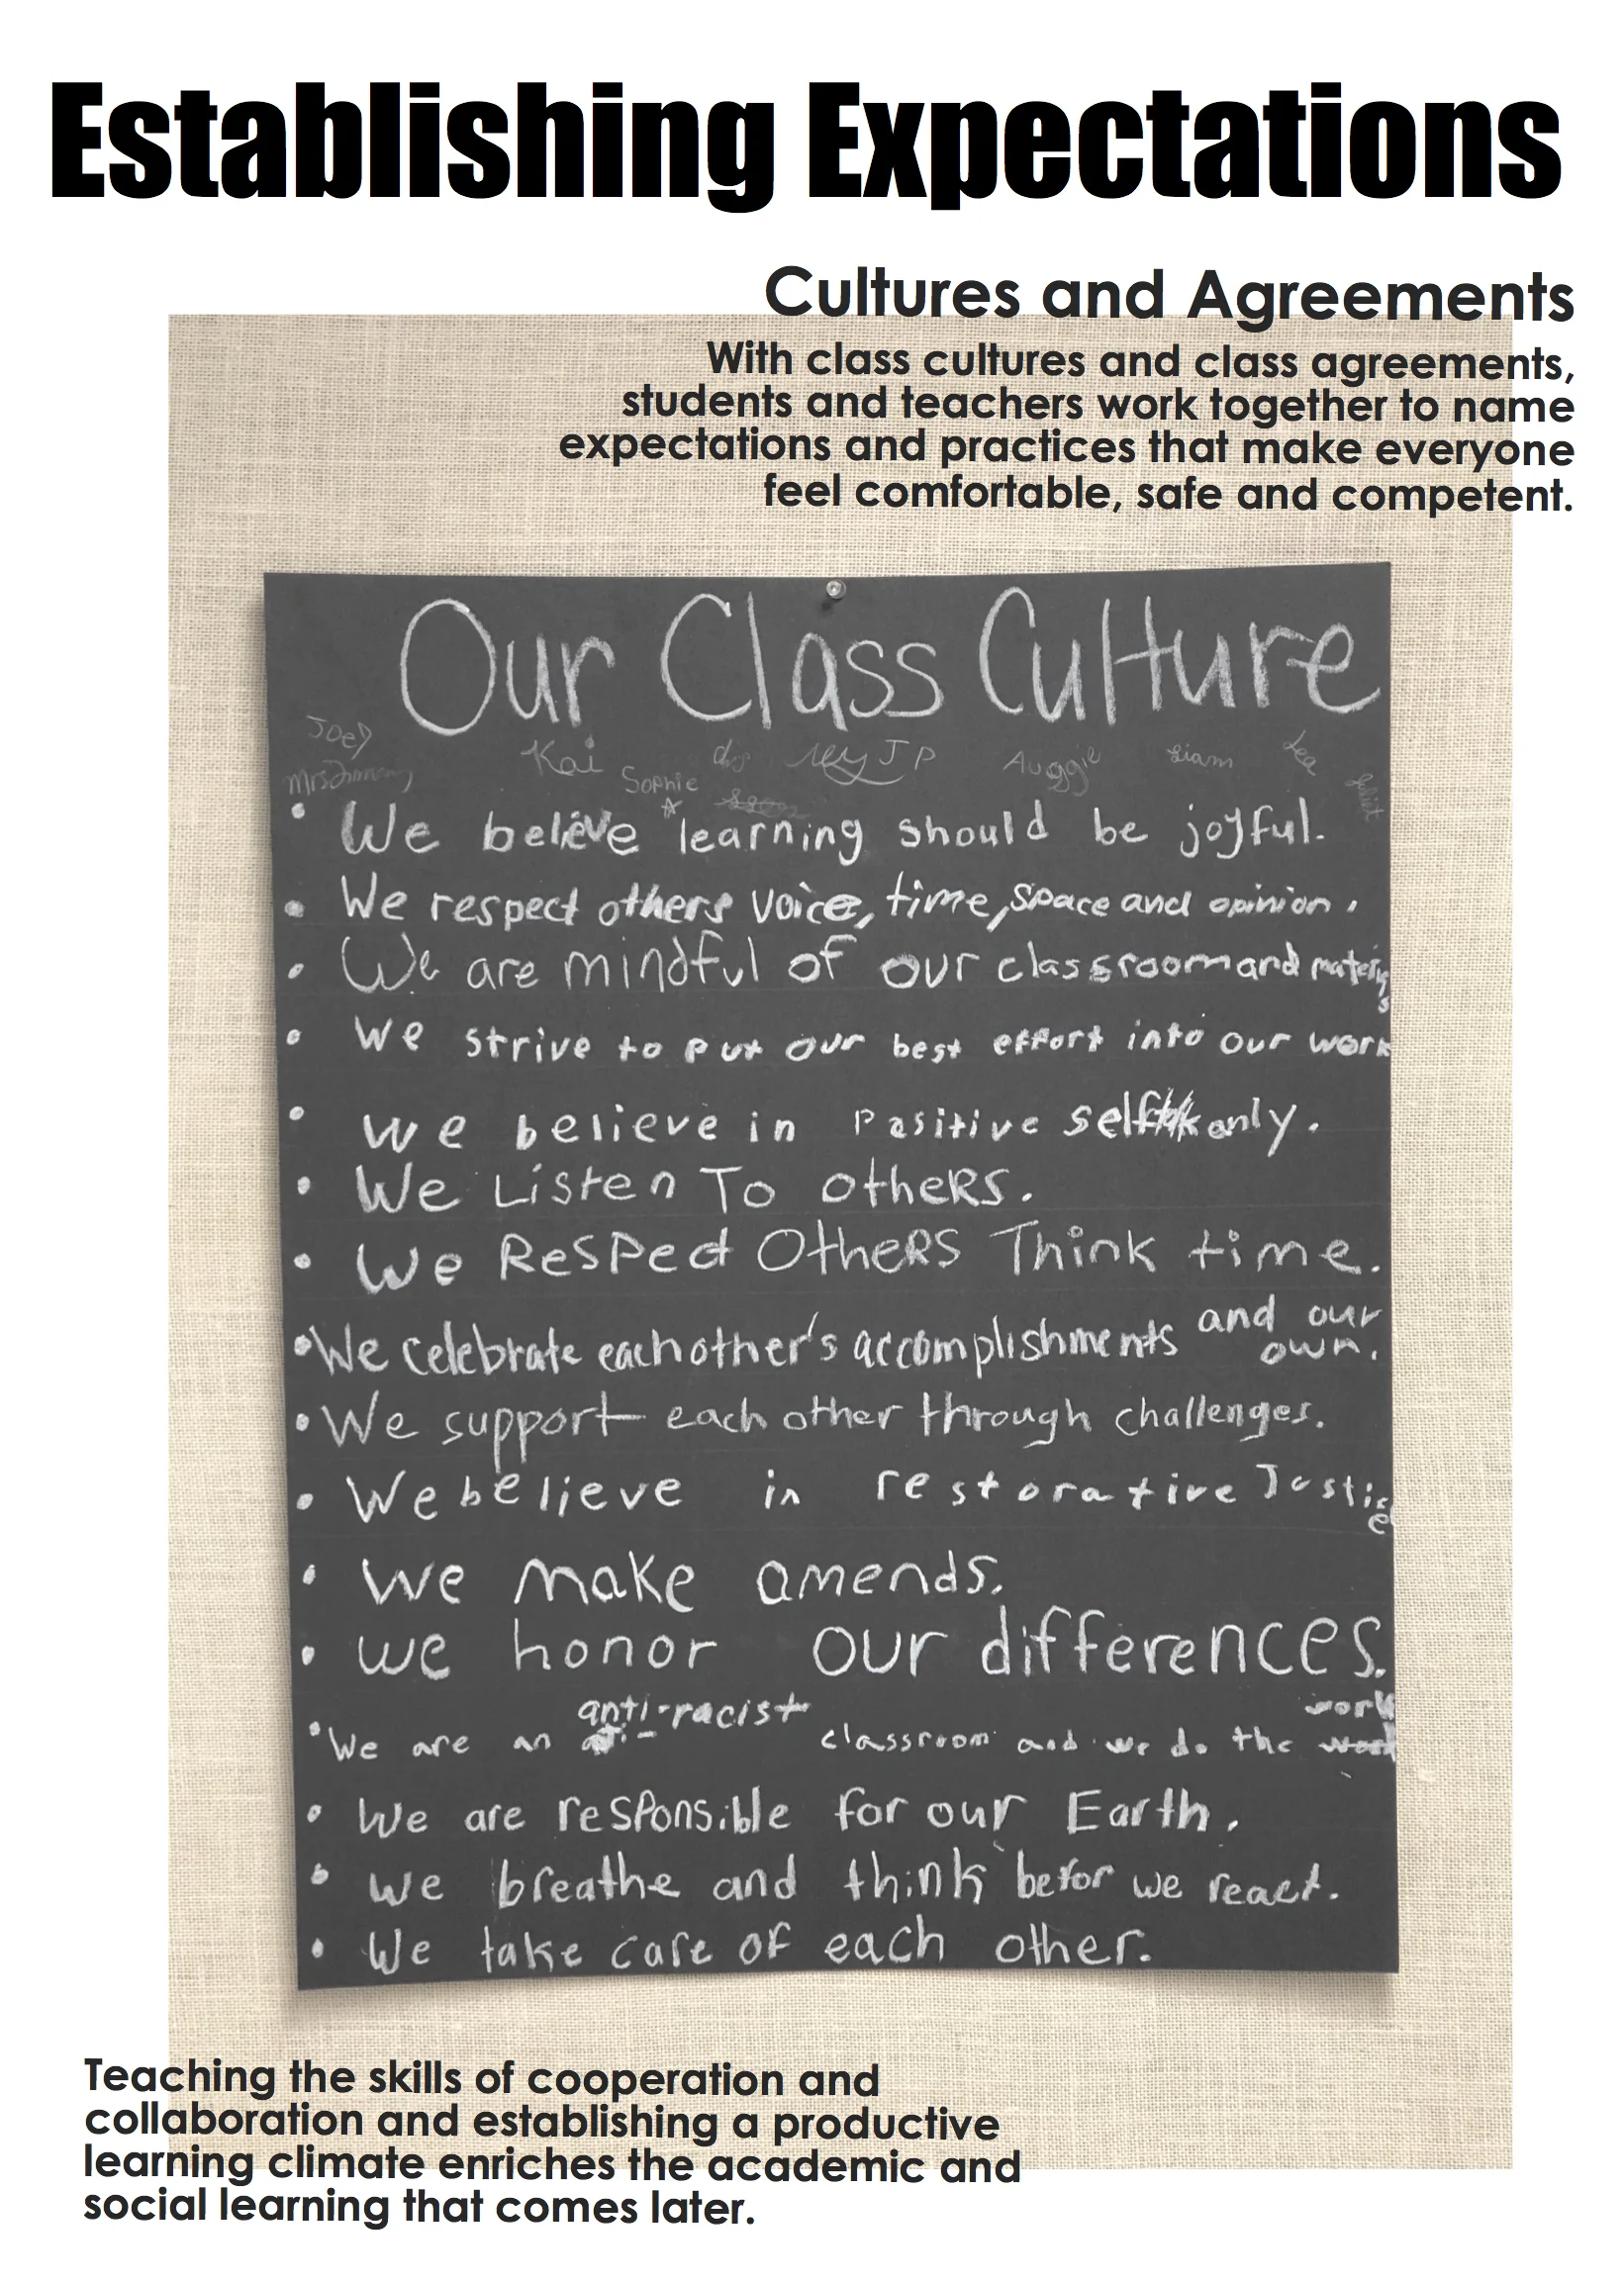 Establishing Expectations
Cultures and Agreements
With class cultures and class agreements,
students and teachers work together to name
expectations and practices that make everyone
feel comfortable, safe and competent.
Our Class Culture
Joey Kai Sophie JP Auggie Liam Lea
• We believe learning should be joyful.
• We respect others voice, time, space and opinion.
• We are mindful of our classroom and
• We strive to put our best effort into our work
• We believe in Pasitive only.
• We Listen To others.
• We Respect Others Think time.
• We celebrate each other's accomplishments and our
own.
• We support each other through challenges.
• We believe in restorative Justice
• We make amends.
• we honor our differences.
• We are an anti-racist classroom and we do the work
• We are responsible for our Earth.
• we breathe and think befor we react.
• We take care of each other.
Teaching the skills of cooperation and
collaboration and establishing a productive
learning climate enriches the academic and
social learning that comes later.